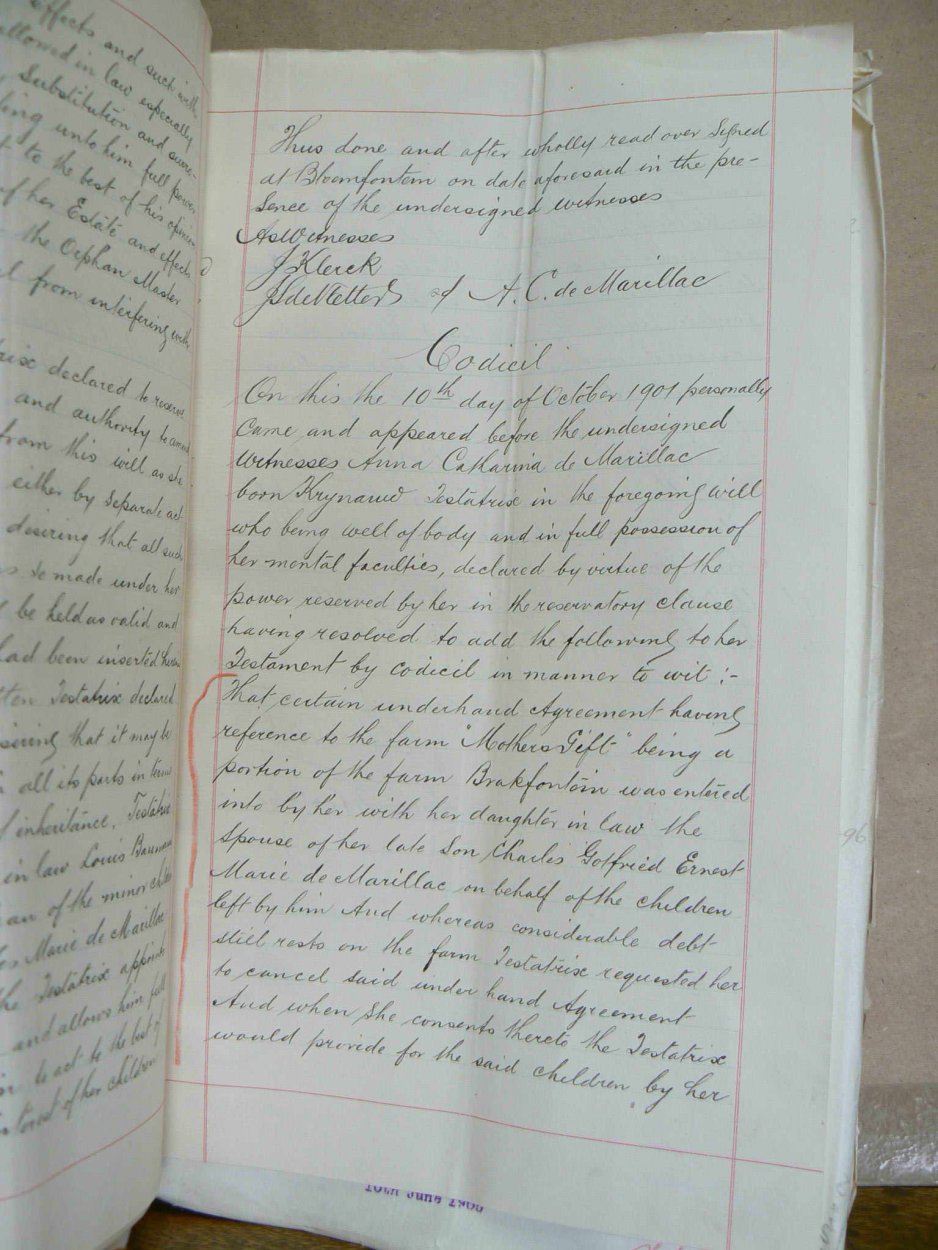 effects and such with
allowed in law especially
Substitution and surro-
ding unto him full power
to the best of his opinion
of her Estate and effects
the Orphan Master
from interfering with
declared to reserve
and authority to amend
from this will as she
either by separate act
desiring that all such
so made under her
be held as valid and
had been inserted herein
Testatrix declared
desiring that it may be
all its parts in terms
inheritance. Testatrix
in law Louis Baumann
of the minor children
Marie de Marillac
the Testatrix appoints
and allows him full
to act to the best of
interest of her children
Thus done and after wholly read over Signed
at Bloemfontein on date aforesaid in the pre-
sence of the undersigned witnesses
As Witnesses
J Klerck
A. C. de Marillac
Codicil
On this the 10th day of October 1901 personally
Came and appeared before the undersigned
Witnesses Anna Catharina de Marillac
born Krynauw Testatrix in the foregoing will
who being well of body and in full possession of
her mental faculties, declared by virtue of the
power reserved by her in the reservatory clause
having resolved to add the following to her
Testament by codicil in manner to wit :-
That certain underhand Agreement having
reference to the farm "Mothers Gift" being a
portion of the farm Brakfontein was entered
into by her with her daughter in law the
Spouse of her late Son Charles Gotfried Ernest
Marie de Marillac on behalf of the children
left by him And whereas considerable debt
still rests on the farm Testatrix requested her
to cancel said under hand Agreement
And when she consents thereto the Testatrix
would provide for the said children by her
96
10th June 1906